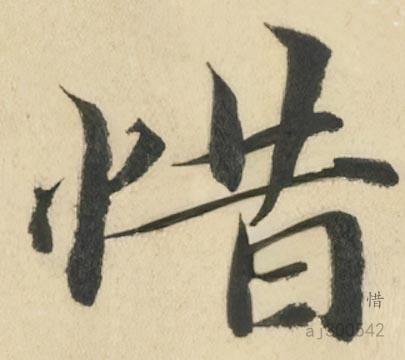 惜
惜
aj300542